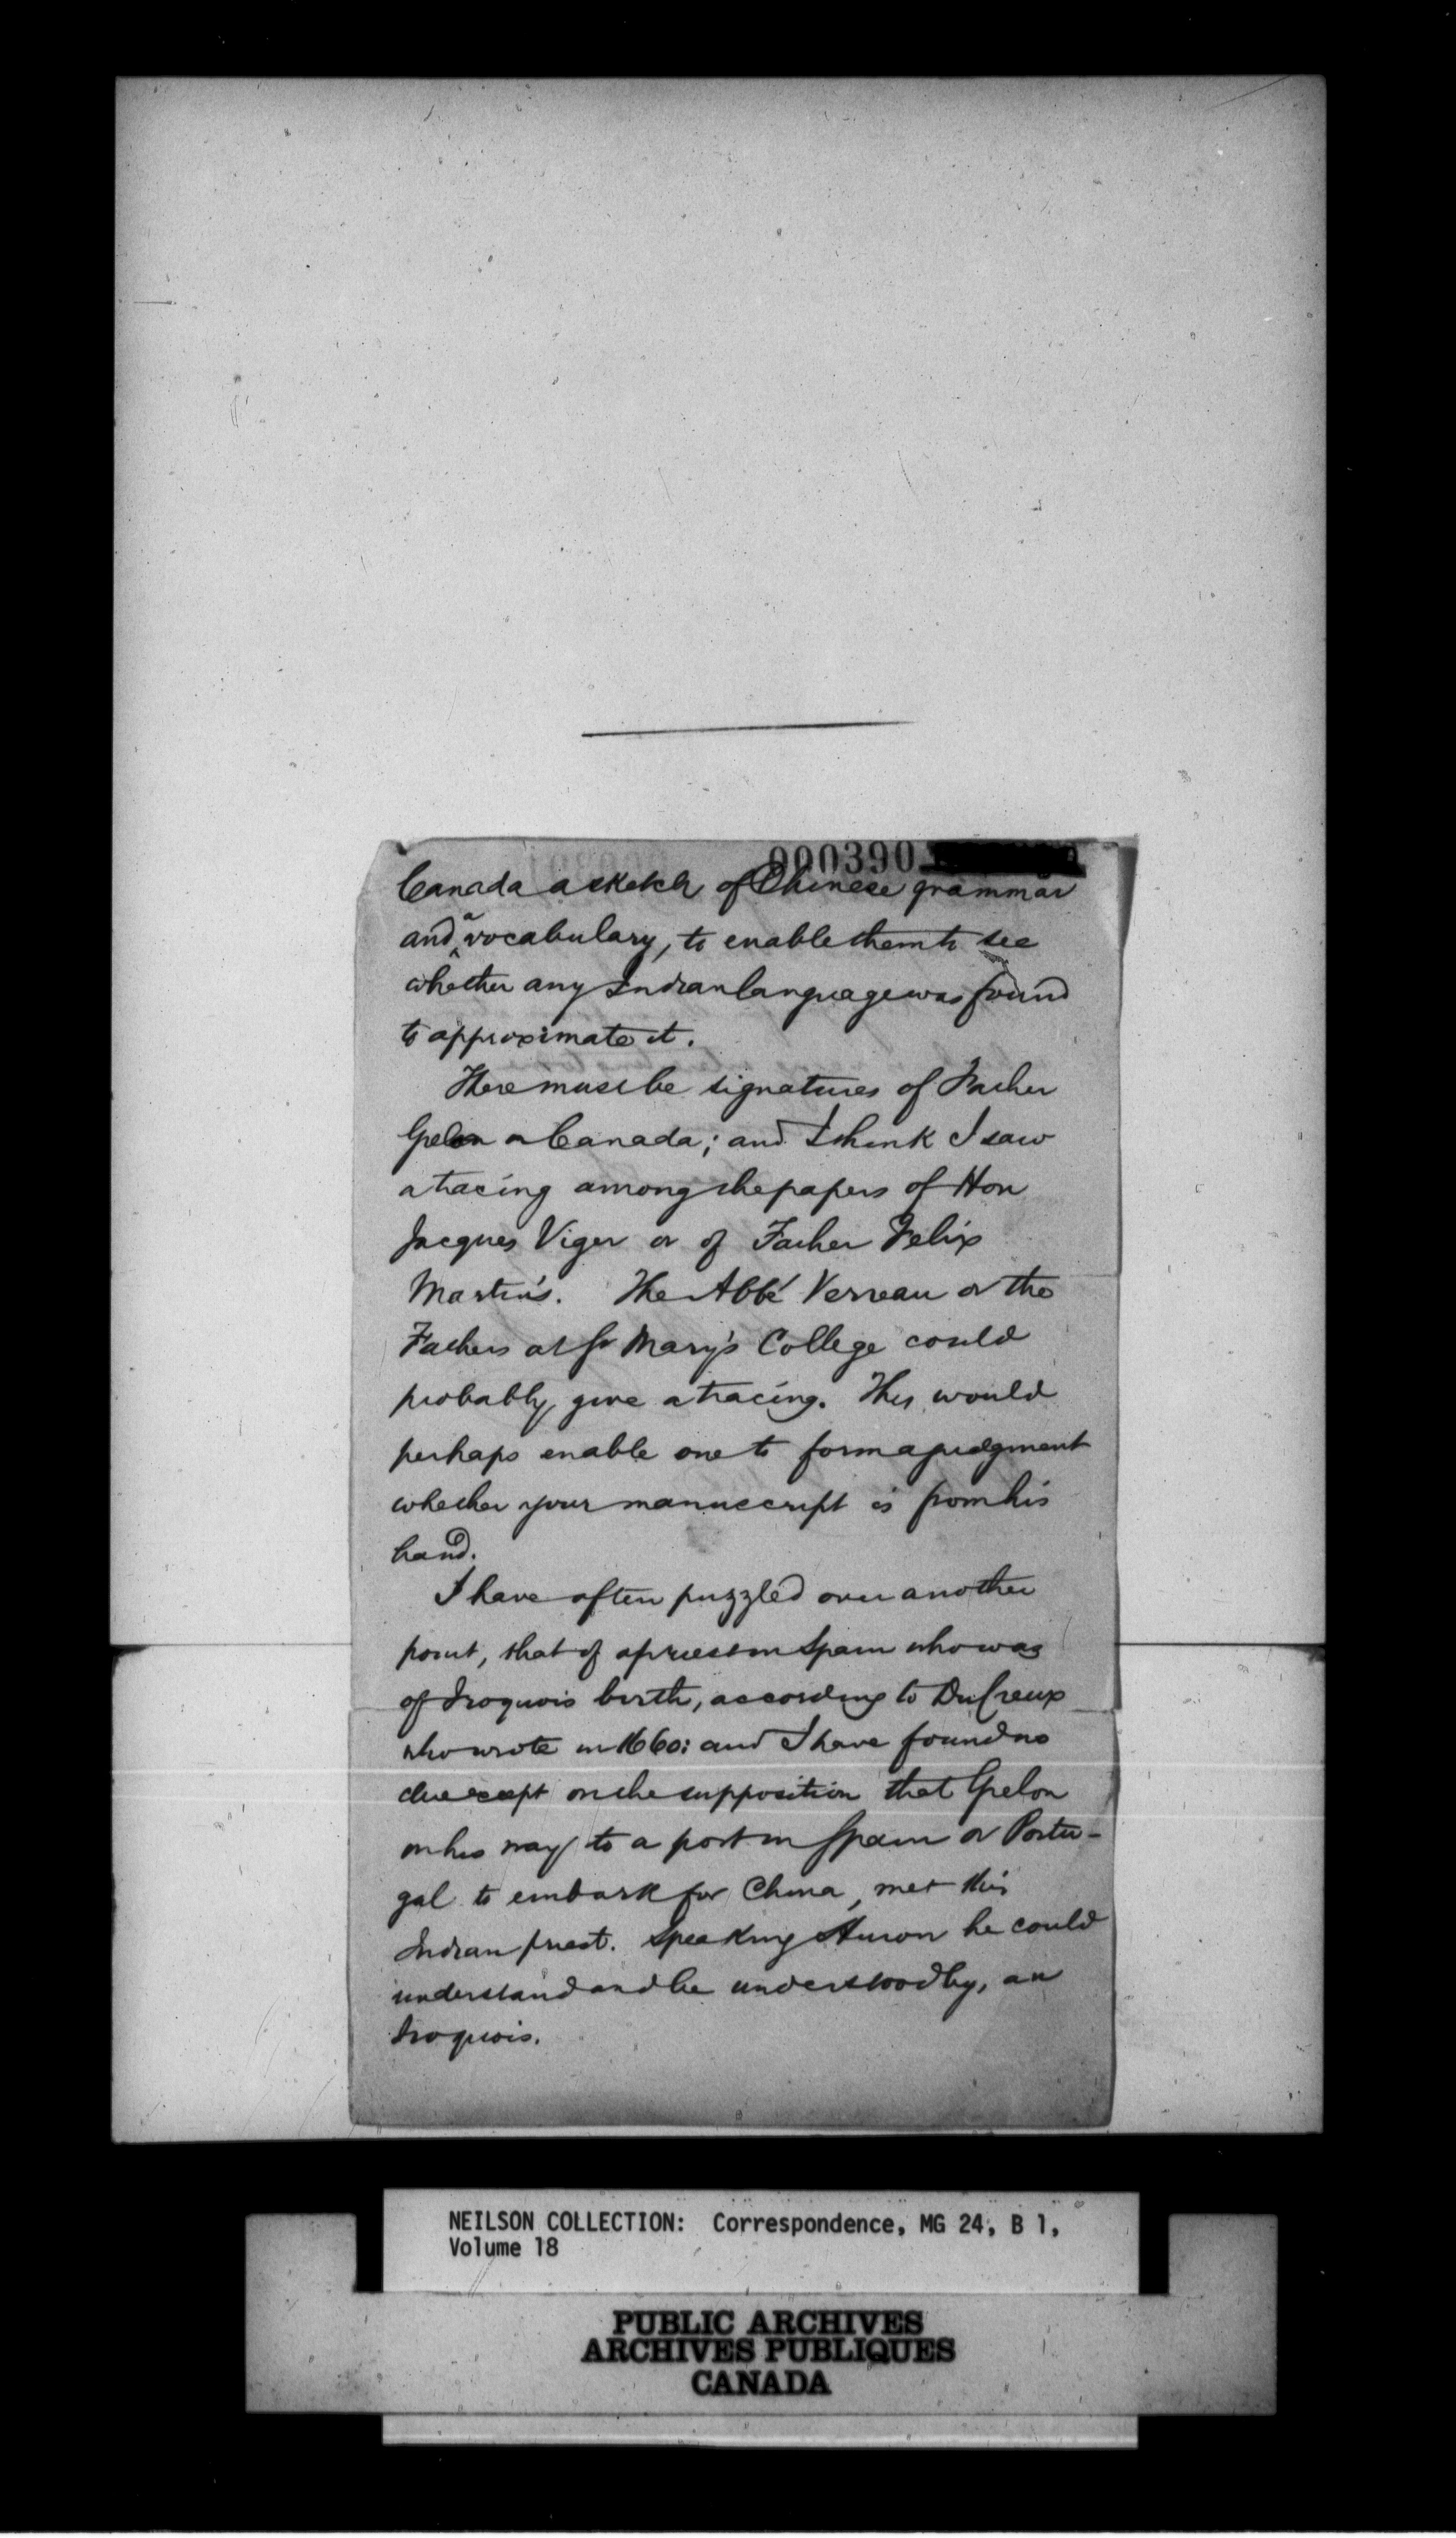 000390
Canada a sketch of Chinese grammar
and a vocabulary, to enable them to see
whether any Indian language was found
to approximate it.
There must be signatures of Father
Grelon in Canada; and I think I saw
a tracing among the papers of Hon
Jacques Viger or of Father Felix
Martin's. The Abbé Verreau or the
Fathers at St Mary's College could
probably give a tracing. This would
perhaps enable one to form a judgment
whether your manuscript is from his
hand.
I have often puzzled over another
point, that of a priest in Spain who was
of Iroquois birth, according to DuCreux
who wrote in 1660: and I have found no
clue except on the supposition that Grelon
on his way to a port in Spain or Portu-
gal to embark for China, met this
Indian priest. Speaking Huron he could
understand and be understood by, an
Iroquois.
NEILSON COLLECTION: Correspondence, MG 24, B 1,
Volume 18
PUBLIC ARCHIVES
ARCHIVES PUBLIQUES
CANADA